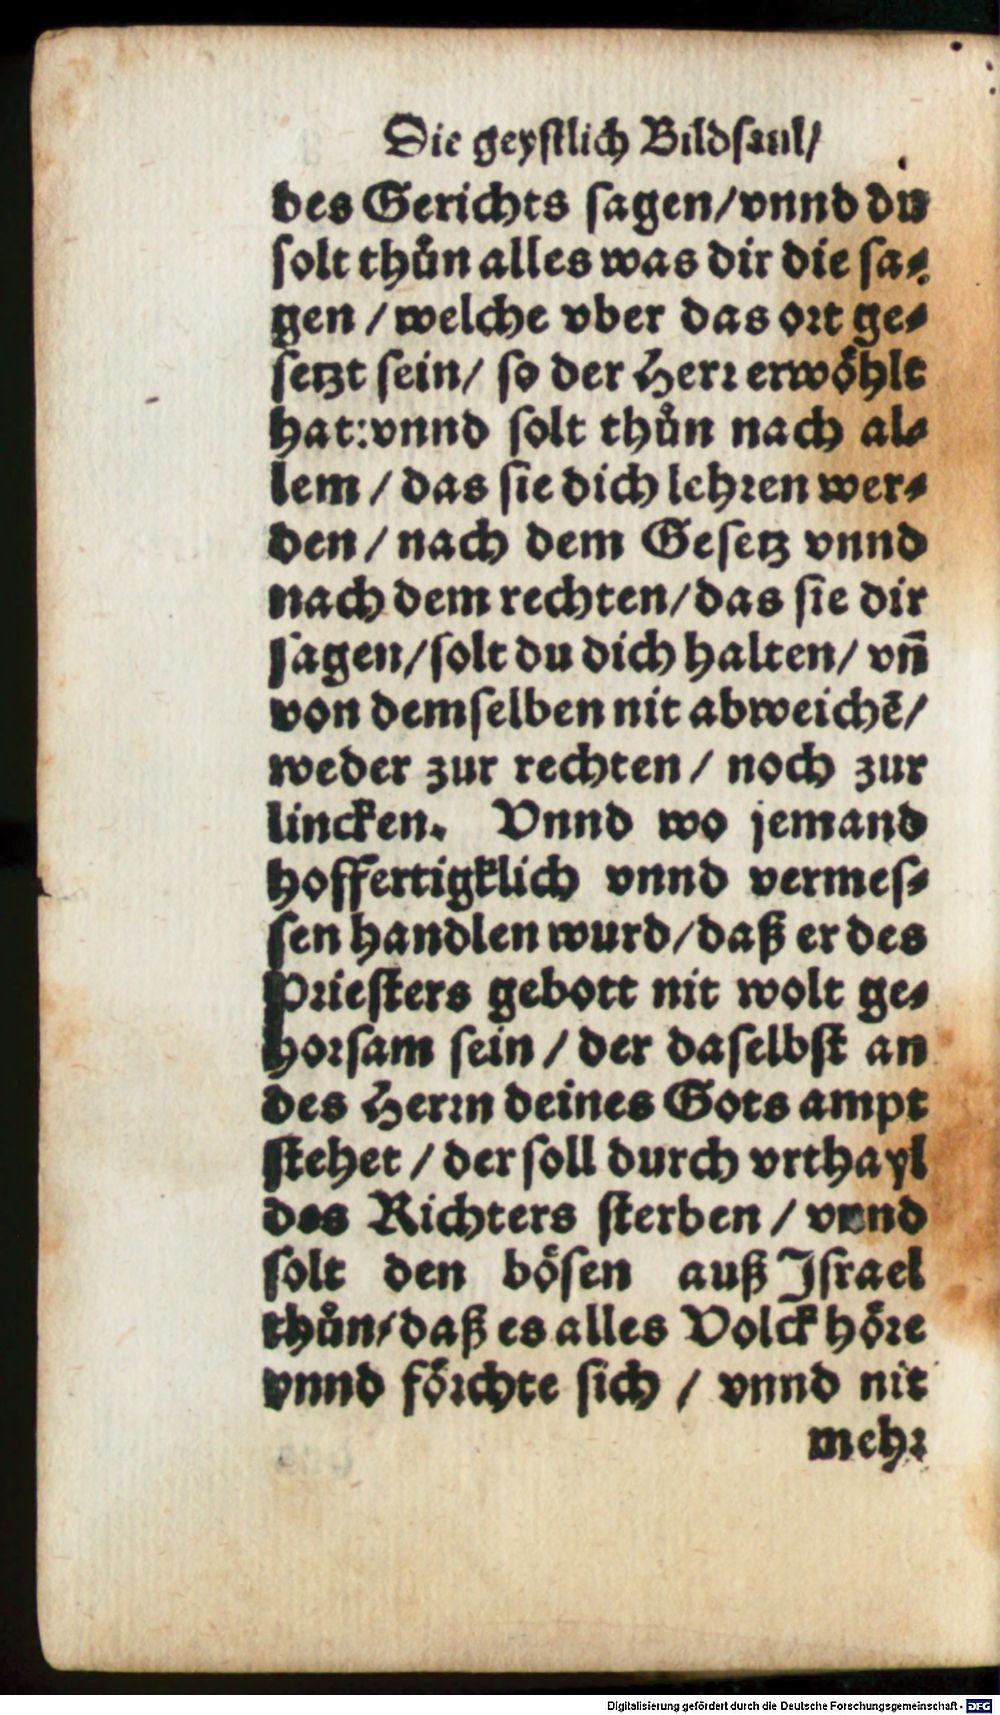 Die geystlich Bildsaul/
des Gerichts sagen/vnnd du
solt thůn alles was dir die sa⸗
gen / welche vber das ort ge⸗
setzt sein/ so der Herr erwöhlt
hat:vnnd solt thůn nach al⸗
lem / das sie dich lehren wer⸗
den / nach dem Gesetz vnnd
nach dem rechten/das sie dir
sagen/solt du dich halten/ vn̄
von demselben nit abweichē/
weder zur rechten / noch zur
lincken. Vnnd wo jemand
hoffertigklich vnnd vermes⸗
sen handlen wurd/daß er des
Priesters gebott nit wolt ge⸗
horsam sein / der daselbst an
des Herrn deines Gots ampt
stehet / der soll durch vrthayl
des Richters sterben / vnnd
solt den bösen auß Israel
thůn/daß es alles Volck höre
vnnd förchte sich / vnnd nit
mehr
Digitalisierung gefördert durch die Deutsche Forschungsgemeinschaft - DFG